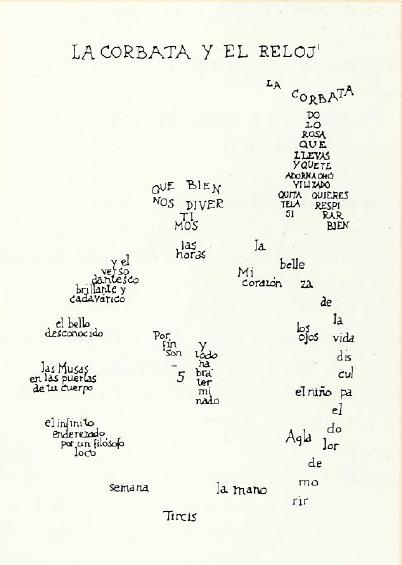 LA CORBATA Y EL RELOJ
LA
CORBATA
DO
LO
ROSA
QUE
LLEVAS
Y QUE TE
ADORNA OH CI
VILIZADO
QUITA QUIERES
TELA RESPI
SI RAR
BIEN
QUE BIEN
NOS DIVER
TI
MOS
las
horas
la
belle
za
de
la
vida
dis
cul
pa
el
do
lor
de
mo
rir
Mi
corazón
los
ojos
el niño
Agla
la mano
Tircis
semana
el infinito
enderezado
por un filósofo
loco
las Musas
en las puertas
de tu cuerpo
el bello
desconocido
y el
verso
dantesco
brillante y
cadavérico
Por
fin
son
-
5
y
todo
ha
brá
ter
mi
nado